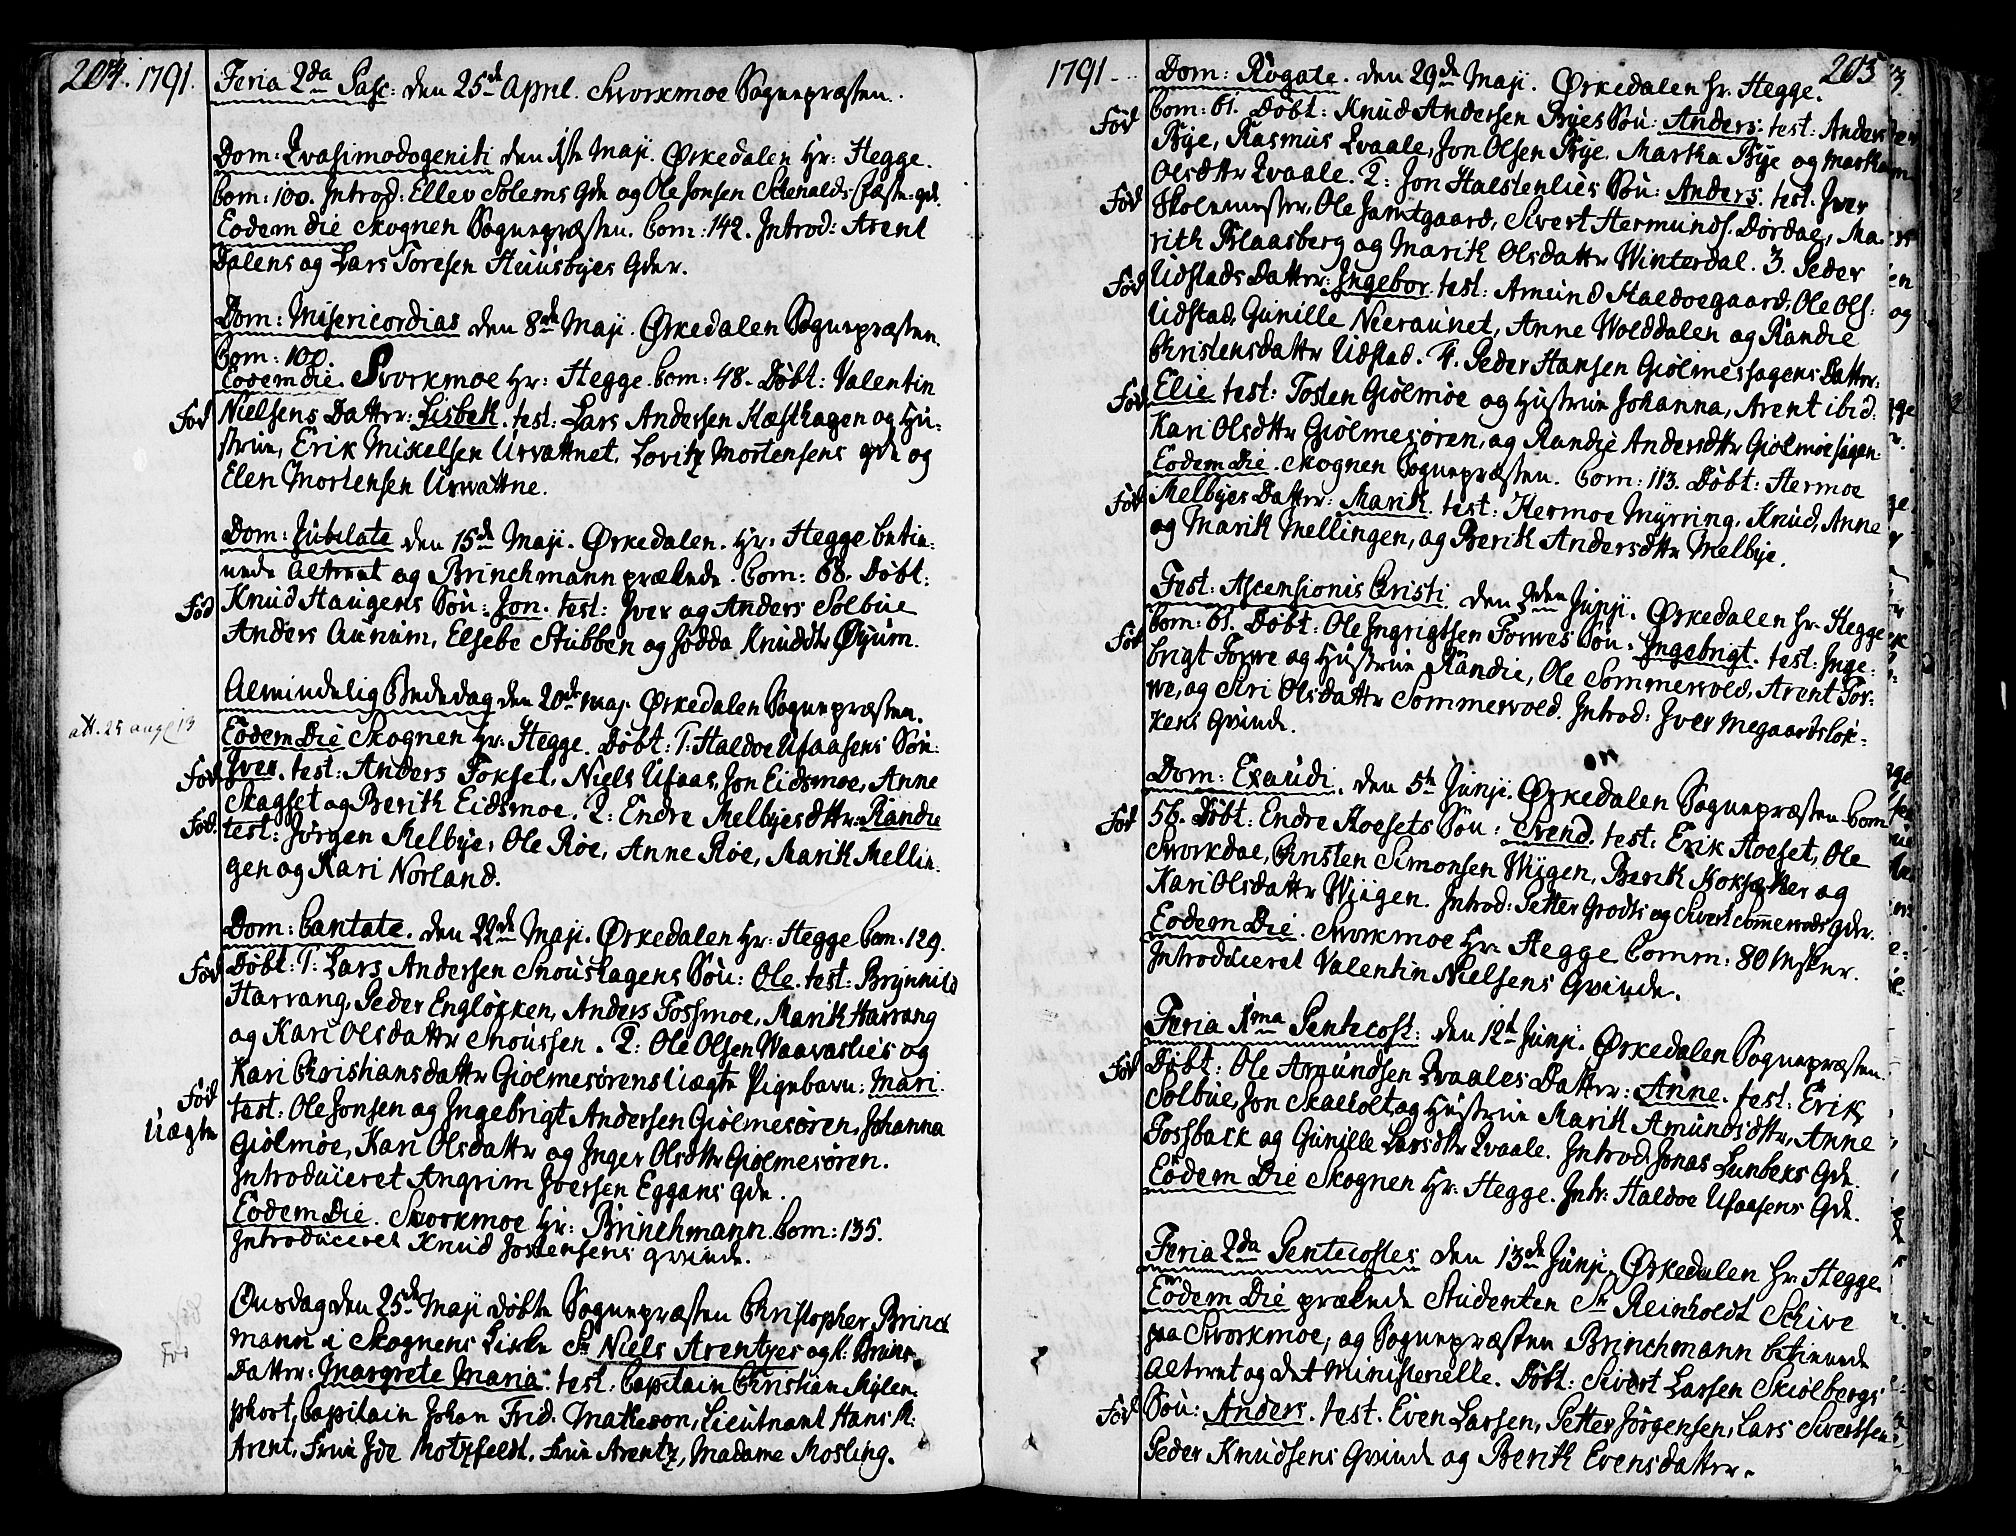 204. 1791.
Feria 2da Pasc: den 25de April. Svorkmoe Sognepræsten.
Dom: Qvasimodogeniti den 1ste Maji. Ørkedalen Hr: Hegge.
Com: 100. Introd: Ellev Solems Qde og Ole Jonsen qde.
Eodem die Skognen Sognepræsten. Com: 142. Introd: Arent
Dalens og Lars Toresen Huusbyes Qder.
Dom: Misericordias den 8de Maji. Ørkedalen Sognepræsten.
Com: 100.
Eodem die. Svorkmoe Hr: Hegge Com: 48. Døbt: Valentin
Fød Nielsens Datter: Lisbeth. test: Lars Andersen Kæsthagen og Hu-
strue, Erik Mikelsen Urvattnet, Lovitz Mortensens qde og
Elen Mortensen Urvattne.
Dom: Jubilate den 15de Maji. Ørkedalen. Hr: Hegge betie-
nede Alteret og Brinchmann prækede. Com: 68. Døbt:
Fød Knud Haugens Søn: Jon. test: Iver og Anders Solbue
Anders Aunum, Elsebe Stubben og Jødda Knudsdtr Øyum.
Almindelig Bededag den 20de Maj. Ørkedalen Sognepræsten.
att. 25 aug 13
Eodem Die Skognen Hr: Hegge. Døbt: 1: Haldoe Ufaasens Søn:
Fød Iver. test: Anders Fokset, Niels Ufaas, Jon Eidsmoe, Anne
Skagset og Berith Eidsmoe. 2: Endre Melbyes dttr: Randie
Fød. test: Jørgen Melbye, Ole Røe, Anne Røe, Marith Mellin-
gen og Kari Norland.
Dom: Cantate. den 22de Maji. Ørkedalen Hr: Hegge Com: 129.
Fød Døbt: 1: Lars Andersen Snoushagens Søn: Ole. test: Brynnild
Harrang, Peder Engløkken, Anders Fossmoe, Marith Harrang
og Kari Olsdattr Snoussen. 2: Ole Olsen Waavaslies og
Kari Christiansdattr Giølmesørens Uægte Pigebarn: Mari.
Fød
Uægte
test: Ole Jonsen og Ingebrigt Andersen Giølmesøren, Johanna
Giølmøe, Kari Olsdattr og Inger Olsdttr Giølmesøren.
Introduceret Angrim Joersen Eggans qde.
Eodem Die. Svorkmoe Hr: Brinchmann. Com: 135.
Introduceret Knud Jostensens qvinde.
Onsdag den 25de Maji døbte Sognepræsten Christopher Brinch
mann i Skognens Kirke Sr Niels Arentzes og K: Bruns
Fød
Datter: Margrete Maria. test: Capitain Christian Mylen-
phort, Capitain Johan Frid. Matheson, Lieutnant Hans R:
Arent, Frue Ide Motzfeldt. Frue Arentz, Madame Mosling.
1791. 205
Dom: Rogate. den 29de Maji. Ørkedalen Hr. Hegge.
Fød Com: 61. Døbt: Knud Andersen Byes Søn: Anders. test: Anders
Bye, Rasmus Qvaale, Jon Olsen Bye. Martha Bye og Martha
Olsdttr Qvaale. 2: Jon Halstenlies Søn: Anders. test. Iver
Fød Skolemester, Ole Jamtgaard, Sivert Hermunds. Dørdal, Ma-
rith Blaasberg og Marith Olsdattr Winterdal. 3. Peder
Fød Udstads Datter: Ingebor. test: Amund Haldoegaard, Ole Ols:
Udstad, Gunille Neeraunet, Anne Wolddalen og Randie
Christensdattr Udstad. 4. Peder Hansen Giølmessagens Datter:
Fød Elie test: Tosten Giølmøe og Hustrue Johanna, Arent ibid.
Kari Olsdttr Giølmesøren, og Randie Andersdttr Giølmøesagen.
Eodem Die. Skognen Sognepræsten. Com: 113. Døbt: Hermoe
Fød Melbyes Datter: Marith. test: Hermoe Myrring, Knud, Anne
og Marith Mellingen, og Berith Andersdttr Melbye.
Fest: Ascensionis Christi den 2den Junji. Ørkedalen Hr. Hegge
Com: 61. Døbt: Ole Ingrigtsen Forwes Søn: Ingebrigt. test: Inge-
Fød brigt Forwe og Hustrue Randie, Ole Sommervold, Arent For-
we, og Siri Olsdattr Sommervold. Introd: Iver Megaardsløk-
kens Qvinde.
Dom: Exaudi. den 5te Junji. Ørkedalen Sognepræsten Com
Fød 56. Døbt: Endre Hoesets Søn: Svend. test: Erik Hoeset, Ole
Svorkdal, Cristen Simonsen Wiigen, Berith Koksæther og
Kari Olsdattr Wiigen. Introd: Petter Grodts og Sivert Sommervolds Qder.
Eodem Die. Svorkmoe Hr. Hegge Comm: 80 Mskr.
Introduceret Valentin Nielsens Qvinde.
Feria 1ma Pentecost: den 12te Junji. Ørkedalen Sognepræsten.
Fød Døbt: Ole Amundsen Qvaales Datter: Anne. test: Erik
Solbue, Jon Skalholt og Hustrue Marith Amundsdttr, Anne
Fossback og Gunille Larsdttr Qvaale. Introd Jonas Lunbeks Qde.
Eodem Die Skognen Hr: Hegge. Intr: Haldoe Ufaasens Qde.
Feria 2da Pentecostes den 13de Junji. Ørkedalen Hr. Hegge.
Eodem Die prækede Studenten Sr Reinholdt Schive
paa Svorkmoe, og Sognepræsten Brinchmann betienede
Alteret og det Ministerielle. Døbt: Sivert Larsen Skiølbergs
Fød Søn: Anders. test. Even Larsen, Petter Jørgensen, Lars Sivertsen
Peder Knudsens Qvinde og Berith Evensdatter.